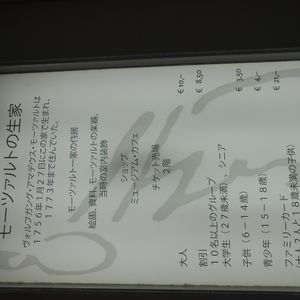 モーツァルトの生家
ヴォルフガング・アマデウス・モーツァルトは
1756年1月27日にこの家で生まれ、
1773年まで住んでいた。
モーツァルト一家の住居
絵画、資料、モーツァルトの楽器、
当時の室内装飾
ショップ
ミュージアム・カフェ
チケット売場
2階
大人 € 10,-
割引 € 8,50
10名以上のグループ、
大学生（27歳未満）、シニア
子供（6－14歳） € 3,50
青少年（15－18歳） € 4,-
ファミリーカード € 21,-